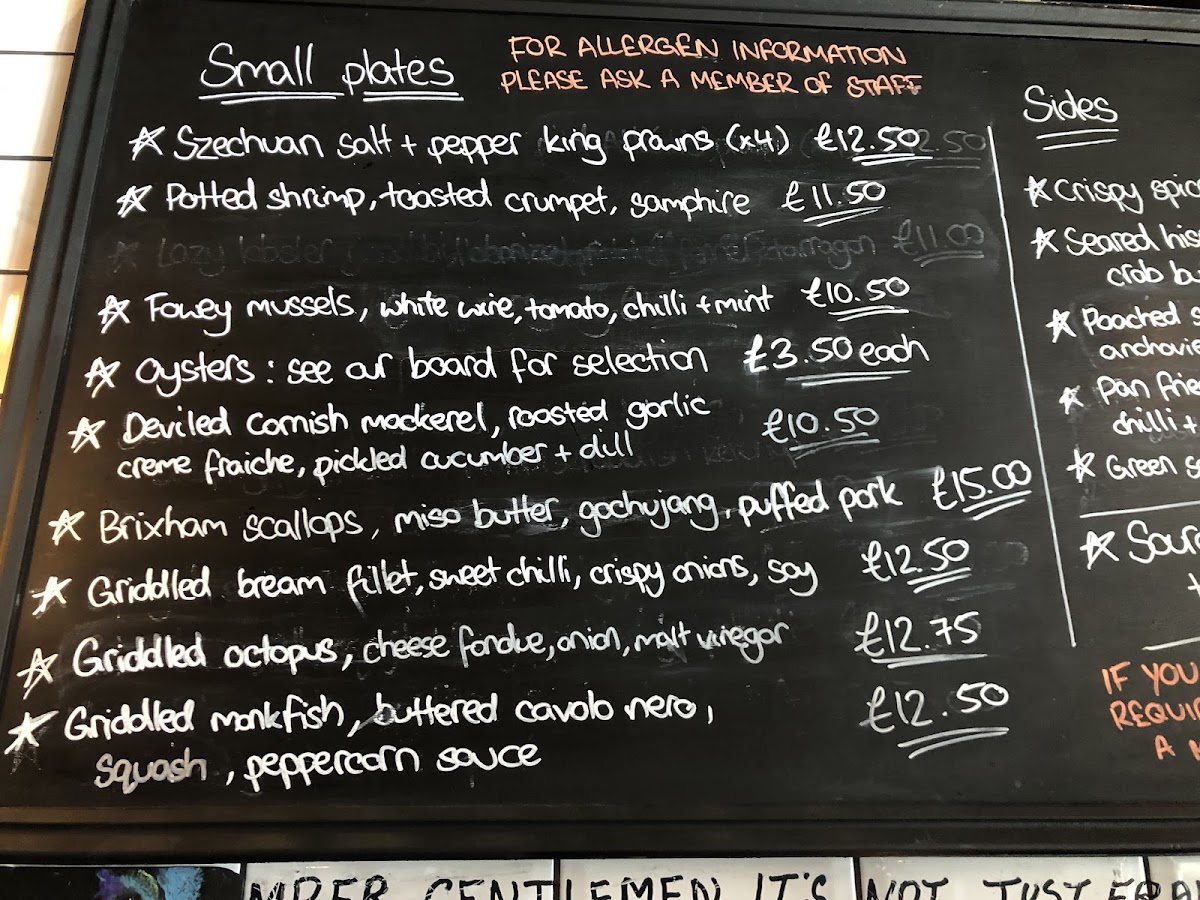 Small plates
FOR ALLERGEN INFORMATION
PLEASE ASK A MEMBER OF STAFF
☆ Szechuan salt + pepper king prawns (x4) £12.50
☆ Potted shrimp, toasted crumpet, samphire £11.50
Lazy lobster £11.00
☆ Fowey mussels, white wine, tomato, chilli + mint £10.50
☆ Oysters: see our board for selection £3.50 each
☆ Deviled Cornish mackerel, roasted garlic
creme fraiche, pickled cucumber + dill £10.50
☆ Brixham scallops, miso butter, gochujang, puffed pork £15.00
☆ Griddled bream fillet, sweet chilli, crispy onions, soy £12.50
☆ Griddled octopus, cheese fondue, onion, malt vinegar £12.75
☆ Griddled monkfish, buttered cavolo nero, £12.50
squash, peppercorn sauce
Sides
☆ Crispy spic
☆ Seared his
crab bu
☆ Poached s
anchovie
☆ Pan frie
chilli +
☆ Green s
☆ Sour
IF YOU
REQUI
A
MBER GENTLEMEN IT'S NOT JUST FRA